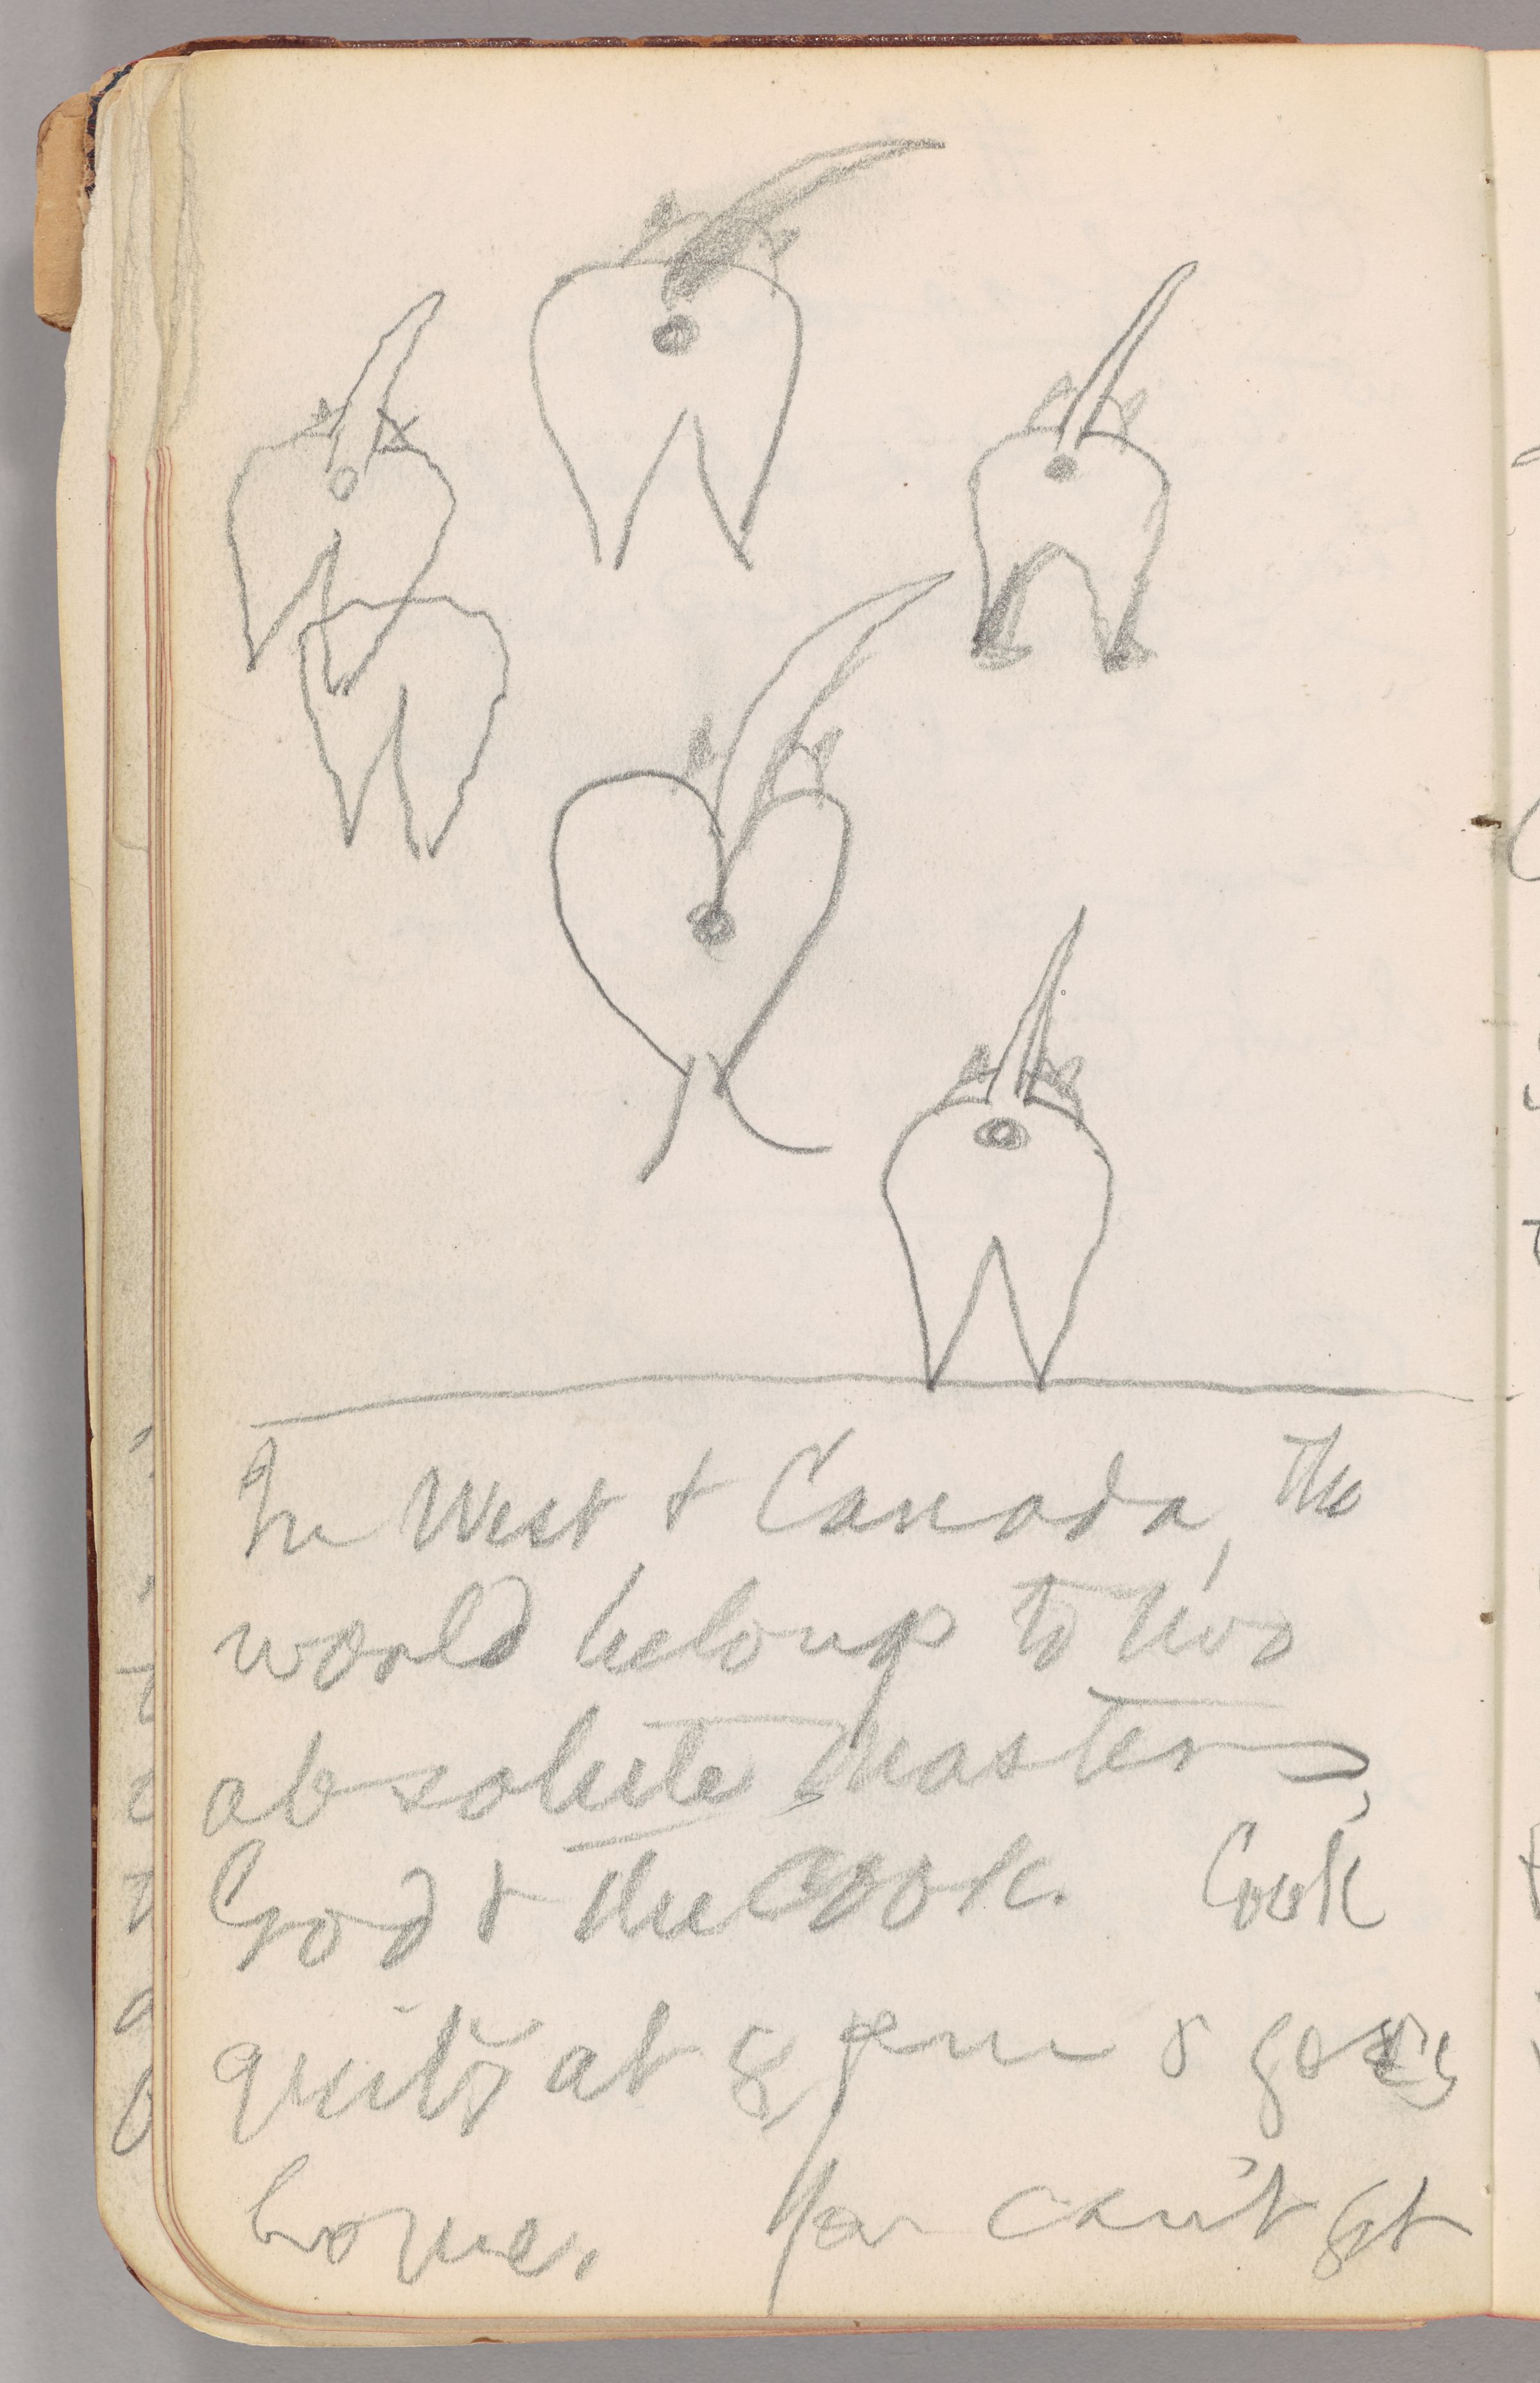 In West & Canada, the
world belongs to two
absolute masters,
God & the cook. Cook
quits at 8 pm & goes
home. You can't get